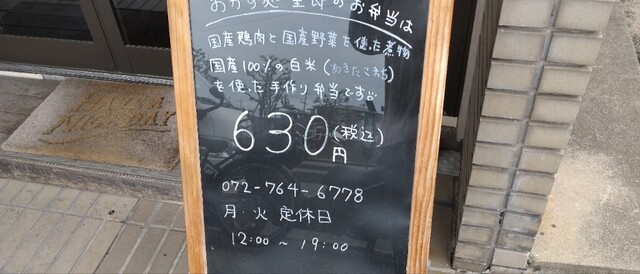 のお弁当は
国産鶏肉と国産野菜を使った煮物
国産100%の白米(あきたこまち)
を使った手作り弁当です
630円(税込)
072-764-6778
月・火 定休日
12:00 〜 19:00